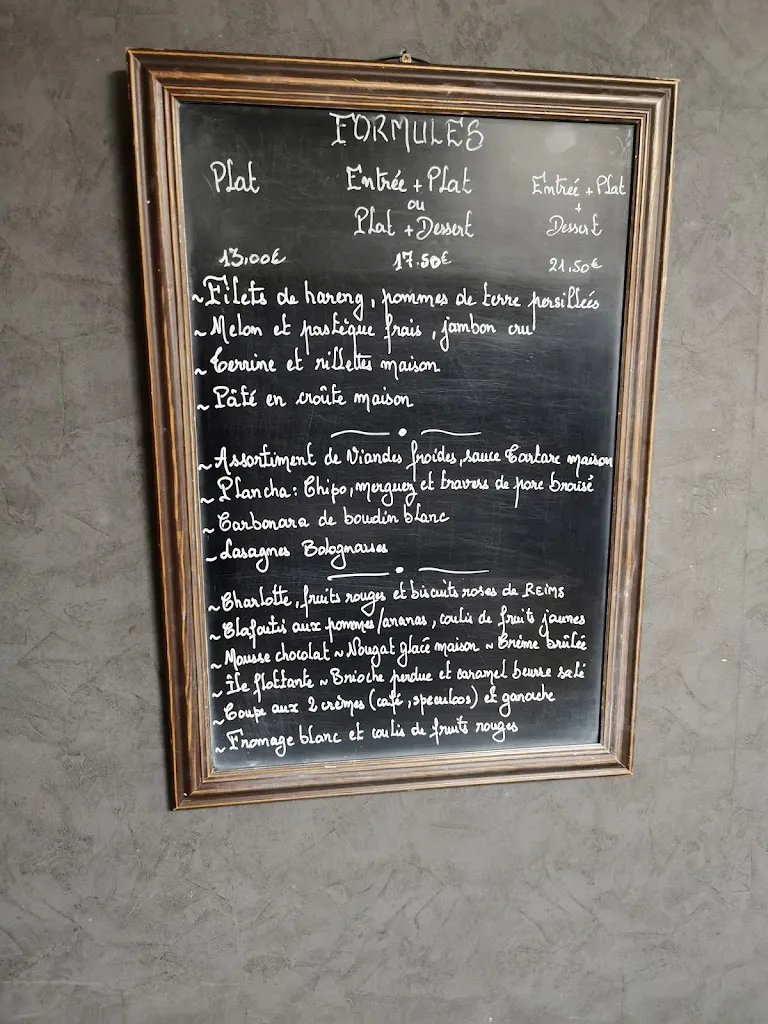 FORMULES
Plat Entrée + Plat Entrée + Plat
ou +
Plat + Dessert Dessert
13,00€ 17.50€ 21.50€
~ Filets de hareng, pommes de terre persillées
~ Melon et pastèque frais, jambon cru
~ Terrine et rillettes maison
~ Pâté en croûte maison
~ Assortiment de Viandes froides, sauce Tartare maison
~ Plancha: Chipo, merguez et travers de porc braisé
~ Carbonara de boudin blanc
~ Lasagnes Bolognaises
~ Charlotte, fruits rouges et biscuits roses de REIMS
~ Clafoutis aux pommes/ananas, coulis de fruits jaunes
~ Mousse chocolat ~ Nougat glacé maison ~ Crème brûlée
~ Île flottante ~ Brioche perdue et caramel beurre salé
~ Coupe aux 2 crèmes (café, speculoos) et ganache
~ Fromage blanc et coulis de fruits rouges